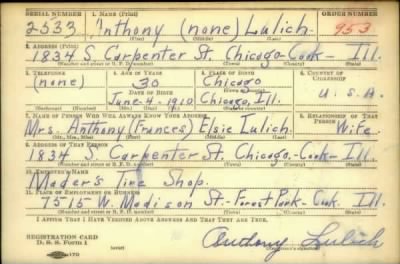 SERIAL NUMBER 1. NAME (Print) ORDER NUMBER
2533 Anthony (none) Lulich. 953
(First) (Middle) (Last)
2. ADDRESS (Print)
1834 S. Carpenter St. Chicago-Cook- Ill.
(Number and street or R. F. D. number) (Town) (County) (State)
3. TELEPHONE 4. AGE IN YEARS 5. PLACE OF BIRTH 6. COUNTRY OF CITIZENSHIP
(none) 30 Chicago
DATE OF BIRTH
June-4-1910 Chicago, Ill. U.S.A.
(Exchange) (Number) (Mo.) (Day) (Yr.) (State or country)
7. NAME OF PERSON WHO WILL ALWAYS KNOW YOUR ADDRESS 8. RELATIONSHIP OF THAT PERSON
Mrs. Anthony (Frances) Elsie Lulich. Wife.
(Mr., Mrs., Miss) (First) (Middle) (Last)
9. ADDRESS OF THAT PERSON
1834 S. Carpenter St. Chicago.-Cook- Ill.
(Number and street or R. F. D. number) (Town) (County) (State)
10. EMPLOYER'S NAME
Maders Tire Shop.
11. PLACE OF EMPLOYMENT OR BUSINESS
7515 W. Madison St.-Forest Park- Cook. Ill.
(Number and street or R. F. D. number) (Town) (County) (State)
I AFFIRM THAT I HAVE VERIFIED ABOVE ANSWERS AND THAT THEY ARE TRUE.
REGISTRATION CARD
D. S. S. Form 1 (over) Anthony Lulich